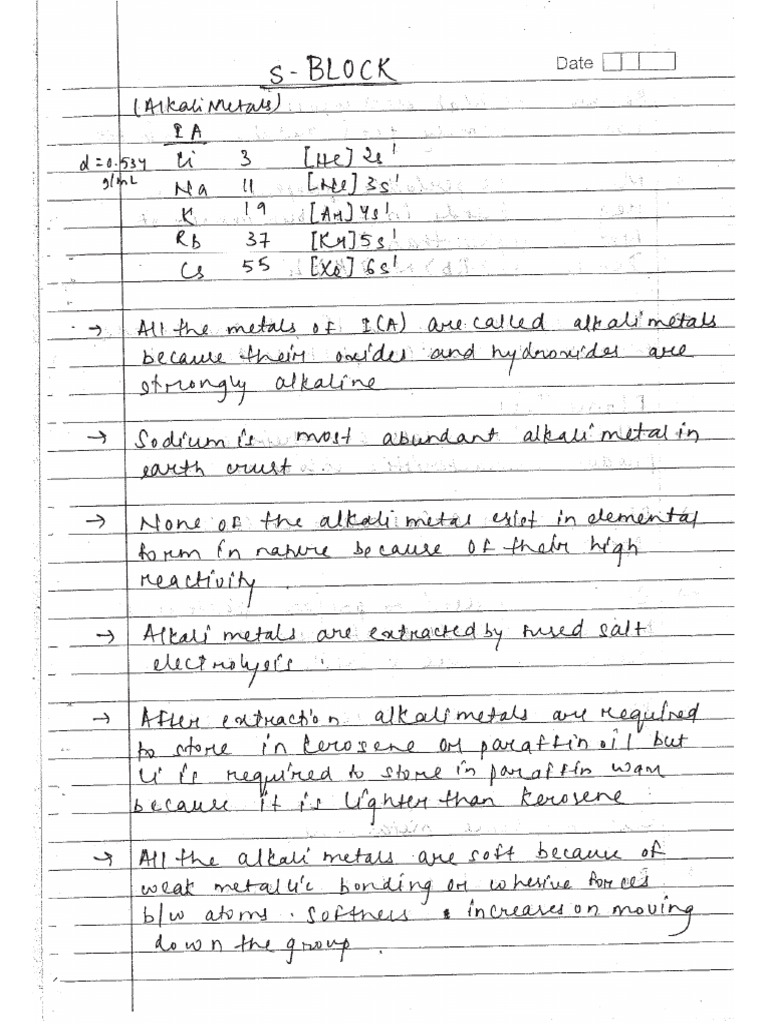 S-BLOCK
Date
(Alkali Metals)
I A
d=0.534 Li 3 [He] 2s¹
g/mL Na 11 [Ne] 3s¹
K 19 [Ar] 4s¹
Rb 37 [Kr] 5s¹
Cs 55 [Xe] 6s¹
→ All the metals of I(A) are called alkali metals
because their oxides and hydroxides are
strongly alkaline
→ Sodium is most abundant alkali metal in
earth crust.
→ None of the alkali metas exist in elemental
form in nature because of their high
reactivity.
→ Alkali metals are extracted by fused salt
electrolysis.
→ After extraction alkali metals are required
to store in kerosene or paraffin oil but
Li is required to store in paraffin wax
because it is lighter than kerosene
→ All the alkali metals are soft because of
weak metallic bonding or cohesive forces
b/w atoms. Softness increases on moving
down the group.